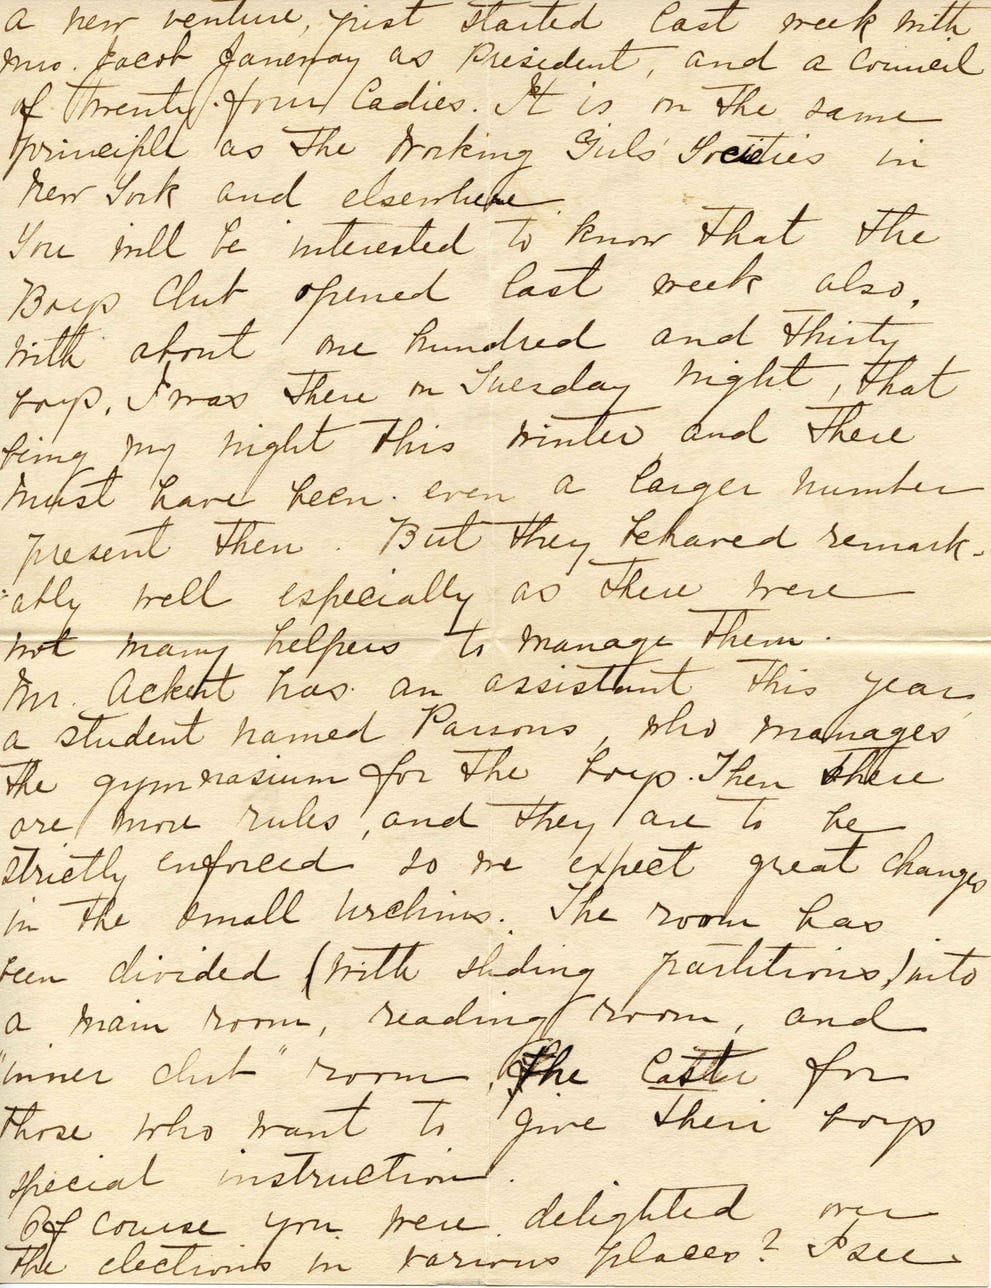 a new venture, just started last week with
Mrs. Jacob Janeway as President, and a Council
of twenty-four ladies. It is on the same
principle as the Working Girls' Societies in
New York and elsewhere
You will be interested to know that the
Boys Club opened last week also,
with about one hundred and thirty
boys. I was there on Tuesday night, that
being my night this winter, and there
must have been even a larger number
present then. But they behaved remark-
ably well especially as there were
not many helpers to manage them.
Mr. Ackert has an assistant this year,
a student named Parsons, who manages
the gymnasium for the boys. Then there
are more rules, and they are to be
strictly enforced so we expect great changes
in the small urchins. The room has
been divided (with sliding partitions,) into
a main room, reading room, and
"inner club" room, the latter for
those who want to give their boys
special instruction.
Of course you were delighted over
the elections in various places? I see